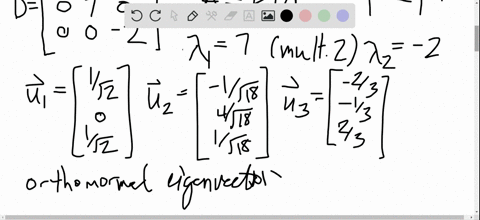 D = [ 0 7
0 0 -2 ]
λ₁ = 7 (mult. 2) λ₂ = -2
u⃗₁ = [ 1/√2 0 1/√2 ] u⃗₂ = [ -1/√18 4/√18 1/√18 ] u⃗₃ = [ -2/3 -1/3 2/3 ]
orthonormal eigenvectors